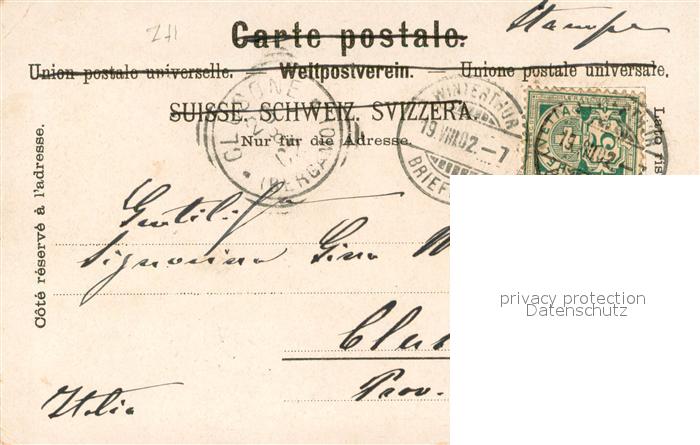 Stampe
Carte postale.
Union postale universelle. — Weltpostverein. — Unione postale universale.
SUISSE. SCHWEIZ. SVIZZERA.
Nur für die Adresse.
Côté réservé à l'adresse.
CLUSONE
(BERGAMO)
WINTERTHUR
19 VIII.02.–7
BRIEF
19 VIII.02
5
Lato ris
Gentilis
Signorina Gina
Clus
Prov.
Italia
privacy protection
Datenschutz